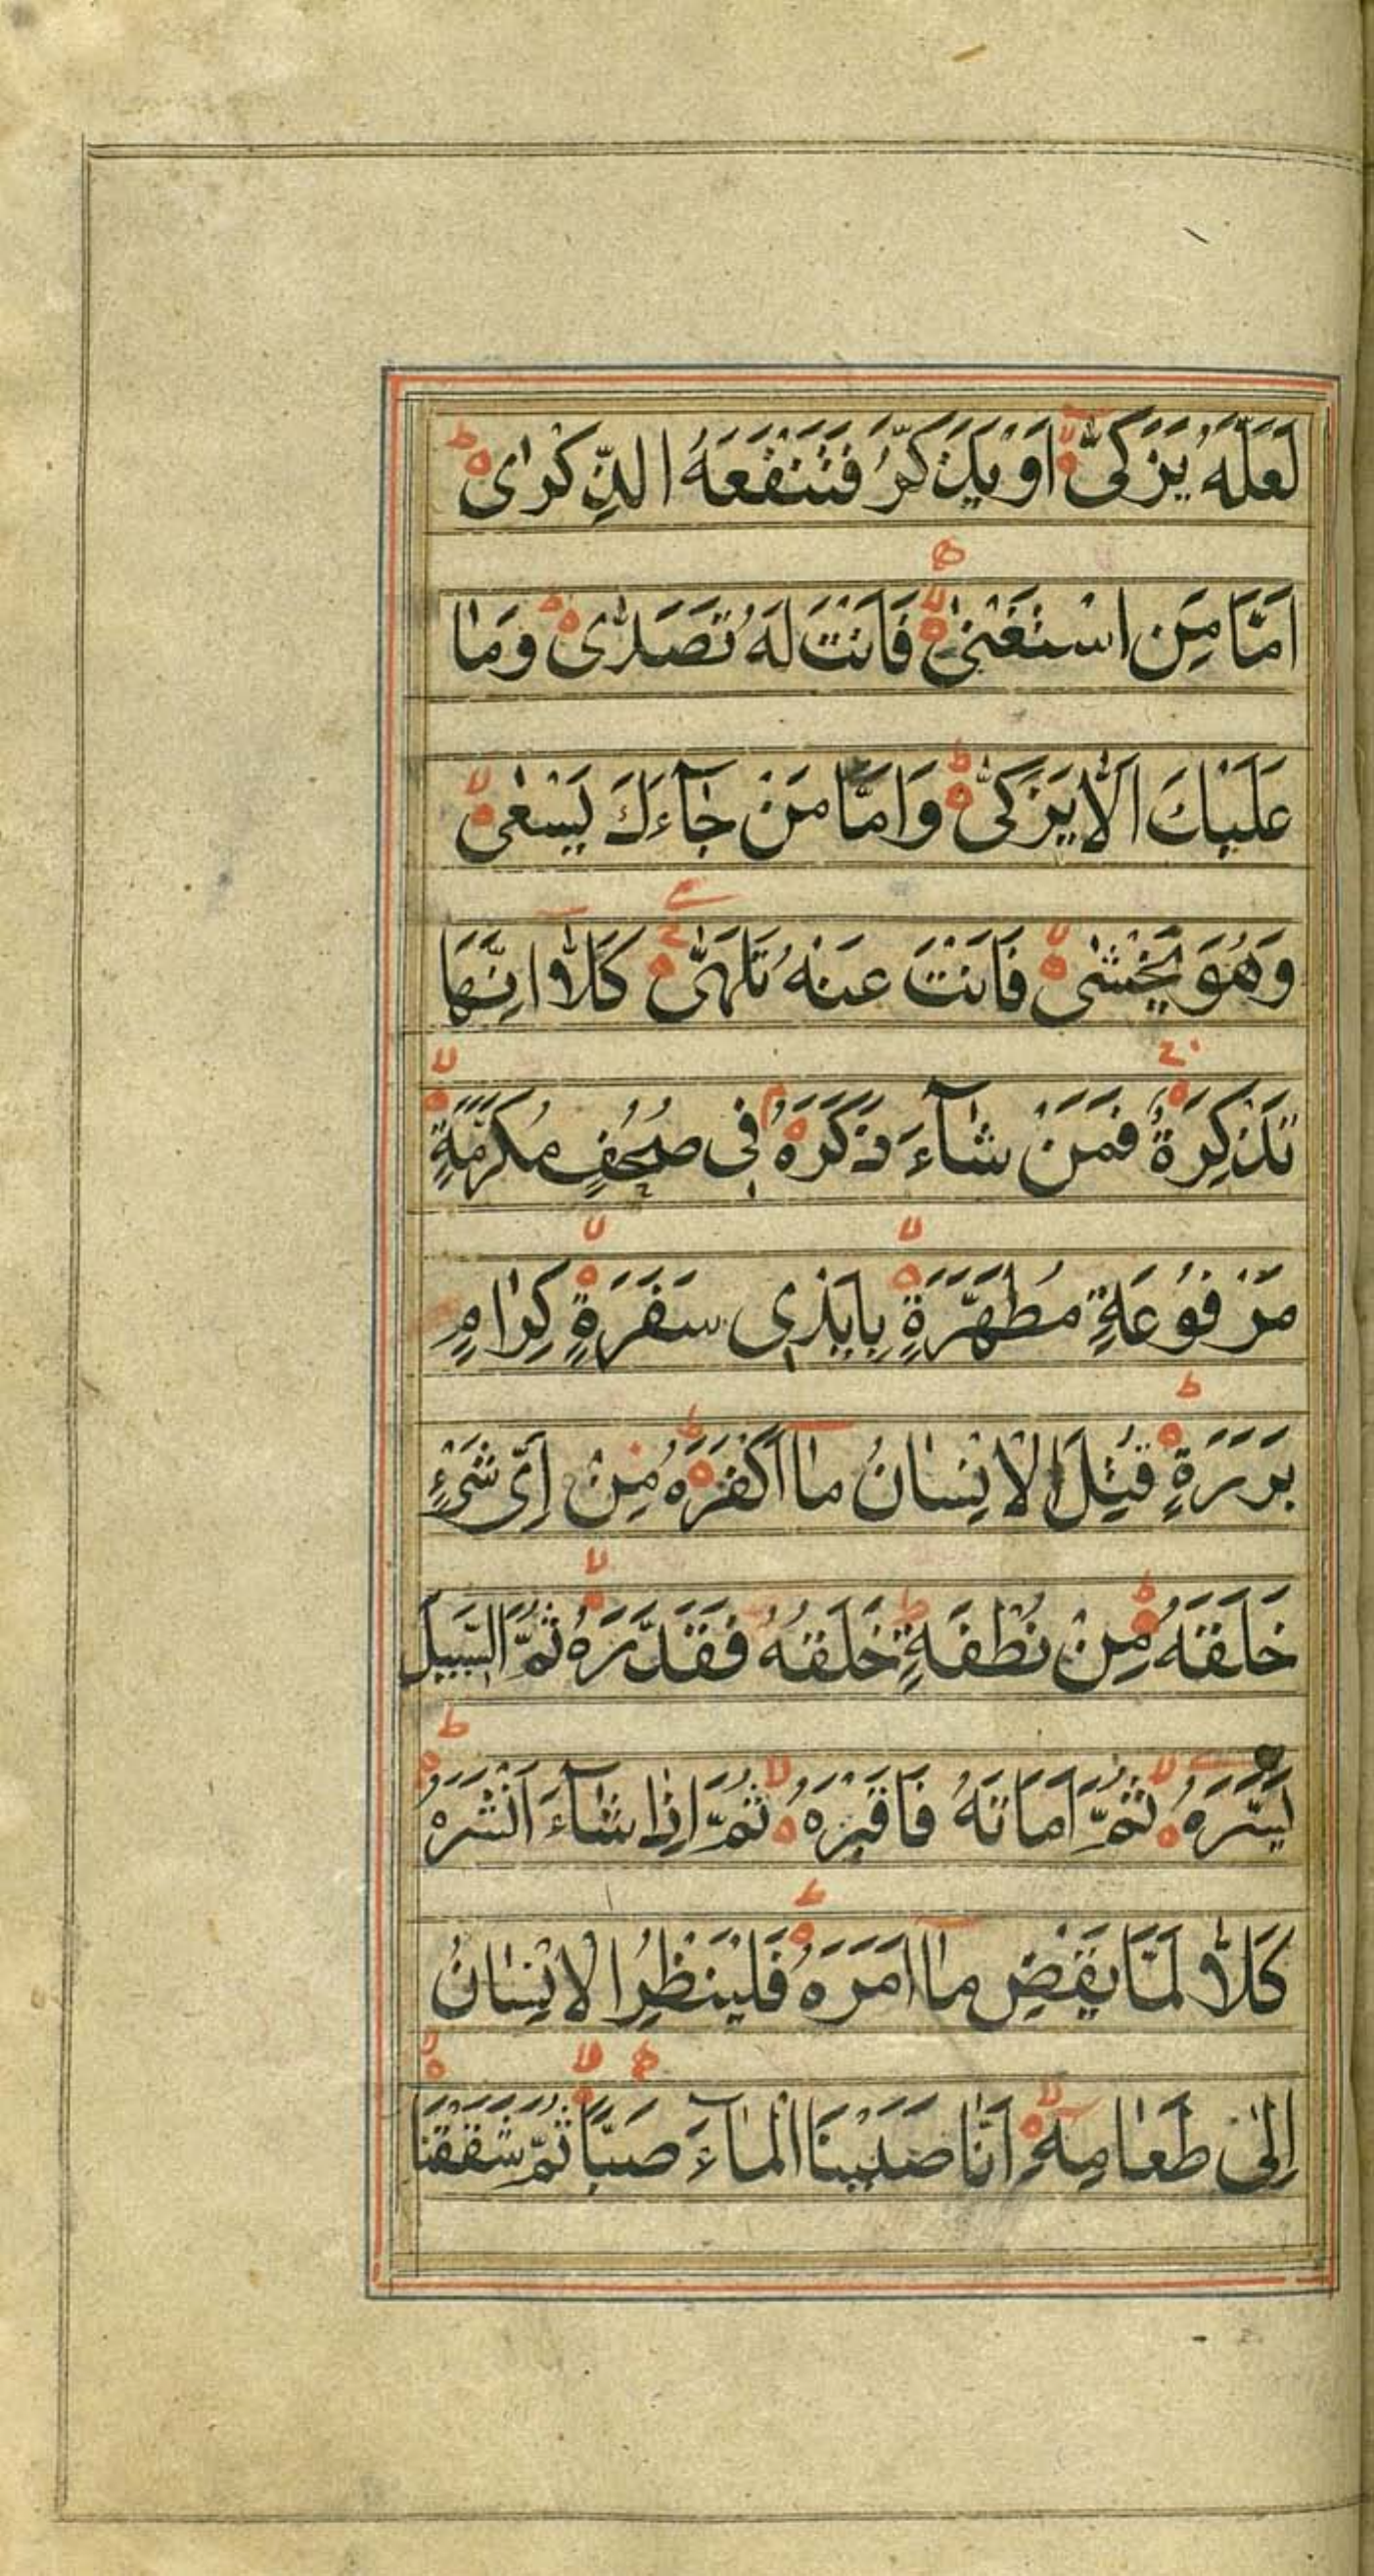 لَعَلَّهُ يَزَّكّٰى اَوْ يَذَّكَّرُ فَتَنْفَعَهُ الذِّكْرٰى
اَمَّا مَنِ اسْتَغْنٰى فَاَنْتَ لَهُ تَصَدّٰى وَمَا
عَلَيْكَ اَلَّا يَزَّكّٰى وَاَمَّا مَنْ جَآءَكَ يَسْعٰى
وَهُوَ يَخْشٰى فَاَنْتَ عَنْهُ تَلَهّٰى كَلَّا اِنَّهَا
تَذْكِرَةٌ فَمَنْ شَآءَ ذَكَرَهُ فِى صُحُفٍ مُكَرَّمَةٍ
مَرْفُوْعَةٍ مُطَهَّرَةٍ بِاَيْدِى سَفَرَةٍ كِرَامٍ
بَرَرَةٍ قُتِلَ الْاِنْسَانُ مَا اَكْفَرَهُ مِنْ اَىِّ شَىْءٍ
خَلَقَهُ مِنْ نُطْفَةٍ خَلَقَهُ فَقَدَّرَهُ ثُمَّ السَّبِيلَ
يَسَّرَهُ ثُمَّ اَمَاتَهُ فَاَقْبَرَهُ ثُمَّ اِذَا شَآءَ اَنْشَرَهُ
كَلَّا لَمَّا يَقْضِ مَا اَمَرَهُ فَلْيَنْظُرِ الْاِنْسَانُ
اِلٰى طَعَامِهٖ اَنَّا صَبَبْنَا الْمَآءَ صَبًّا ثُمَّ شَقَقْنَا